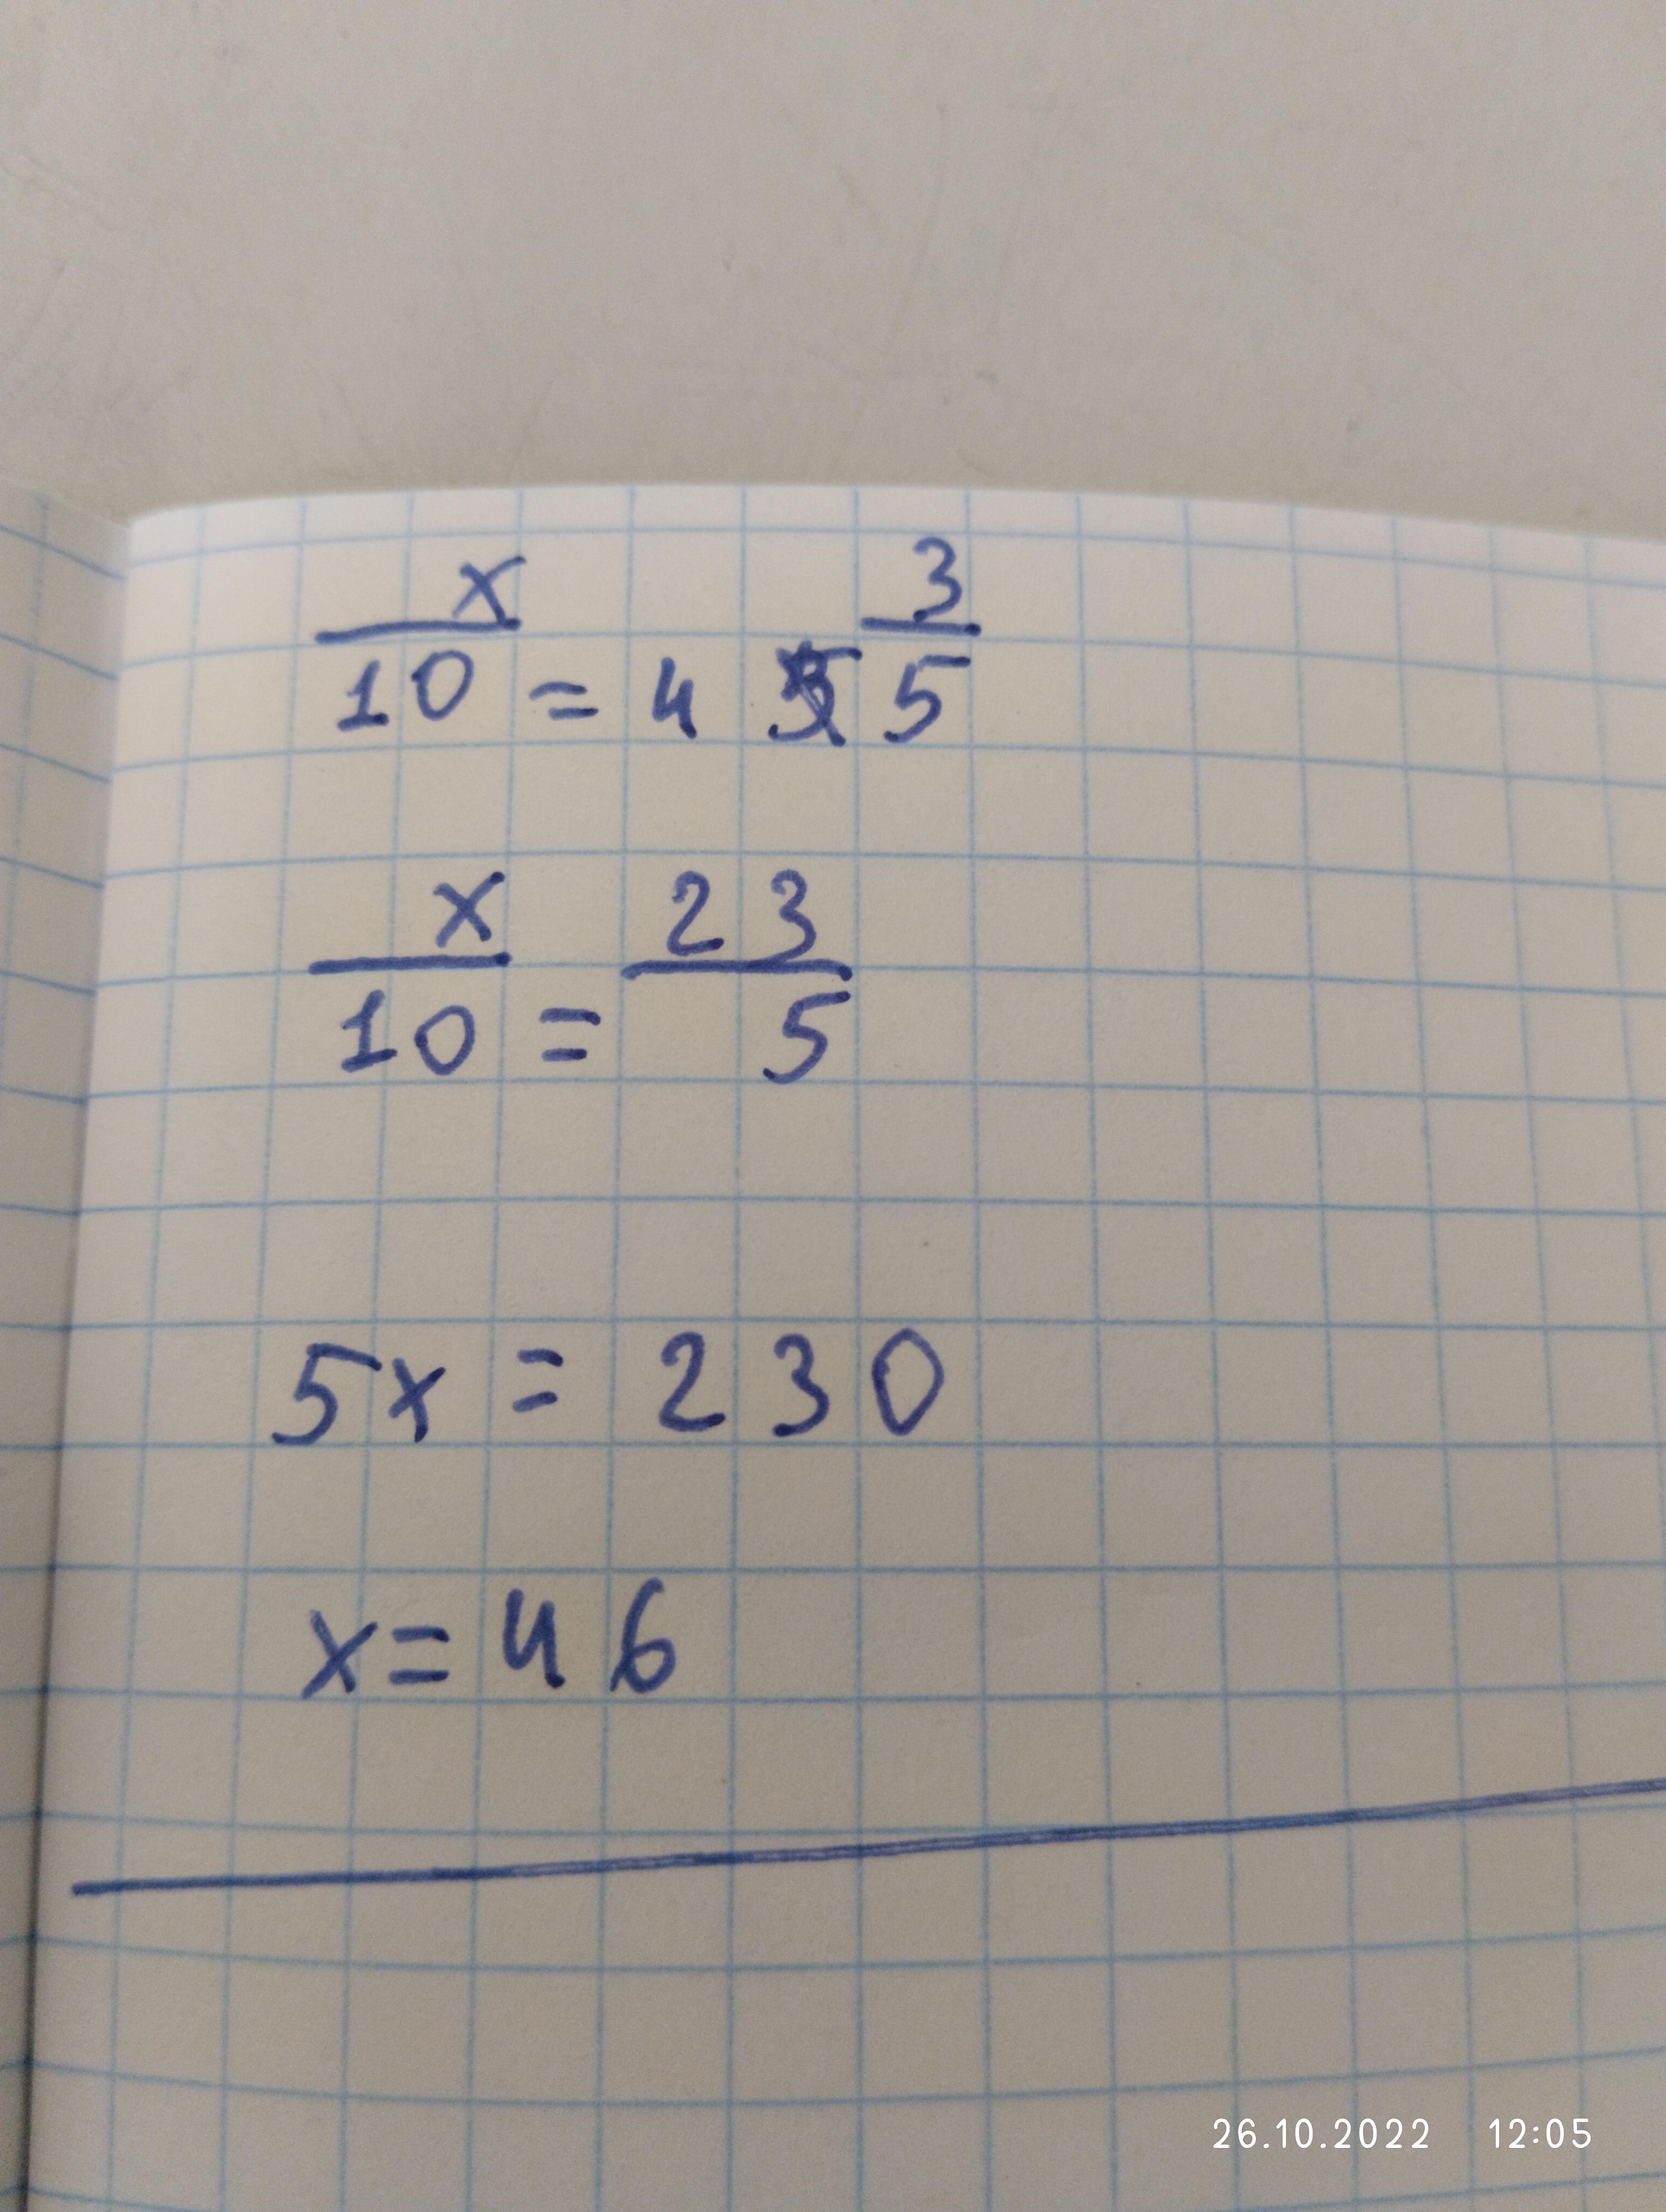 x/10 = 4 3/5
x/10 = 23/5
5x = 230
x = 46
26.10.2022 12:05